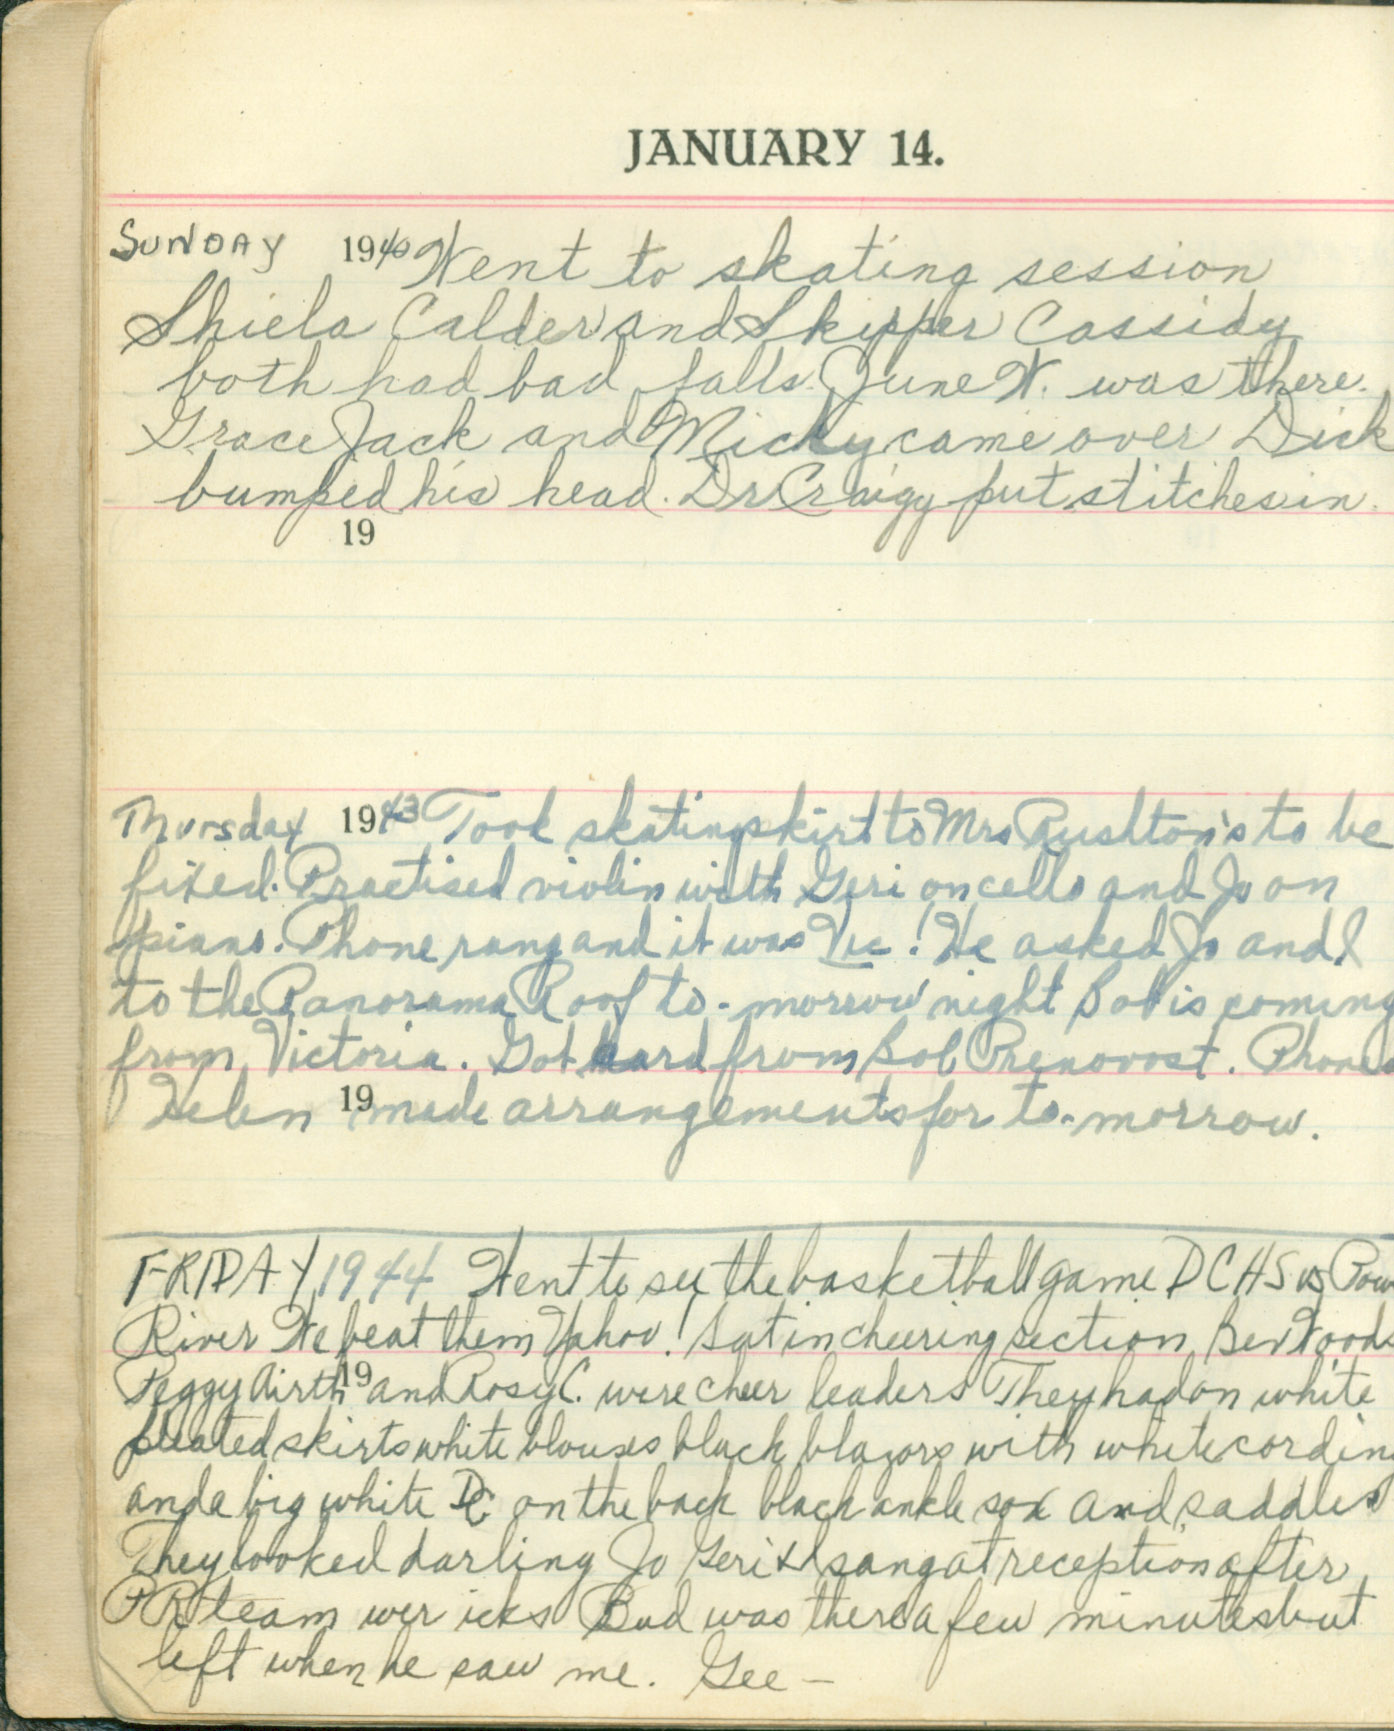 JANUARY 14.
SUNDAY 1940 Went to skating session
Shiela Calder and Skipper Cassidy
both had bad falls. June W. was there.
Grace Jack and Micky came over Dick
bumped his head. Dr Craigy put stitches in.
19
Thursday 1943 Took skating skirt to Mrs Rushton's to be
fixed. Practised violin with Geri on cello and Jo on
piano. Phone rang and it was Vic! He asked Jo and I
to the Panorama Roof to-morrow night Bob is coming
from Victoria. Got card from Bob Prenovost. Phoned
Helen 19 made arrangements for to-morrow.
FRIDAY 1944 Went to see the basketball game DCHS vs Pow
River We beat them Yahoo! Sat in cheering section Bev Woods
Peggy Airth 19 and Rosy C. were cheer leaders They had on white
pleated skirts white blouses black blazors with white cording
and a big white DC on the back black ankle sox and saddles
They looked darling Jo Geri & I sang at reception after
PR team wer icks Bud was there a few minutes but
left when he saw me. Gee —